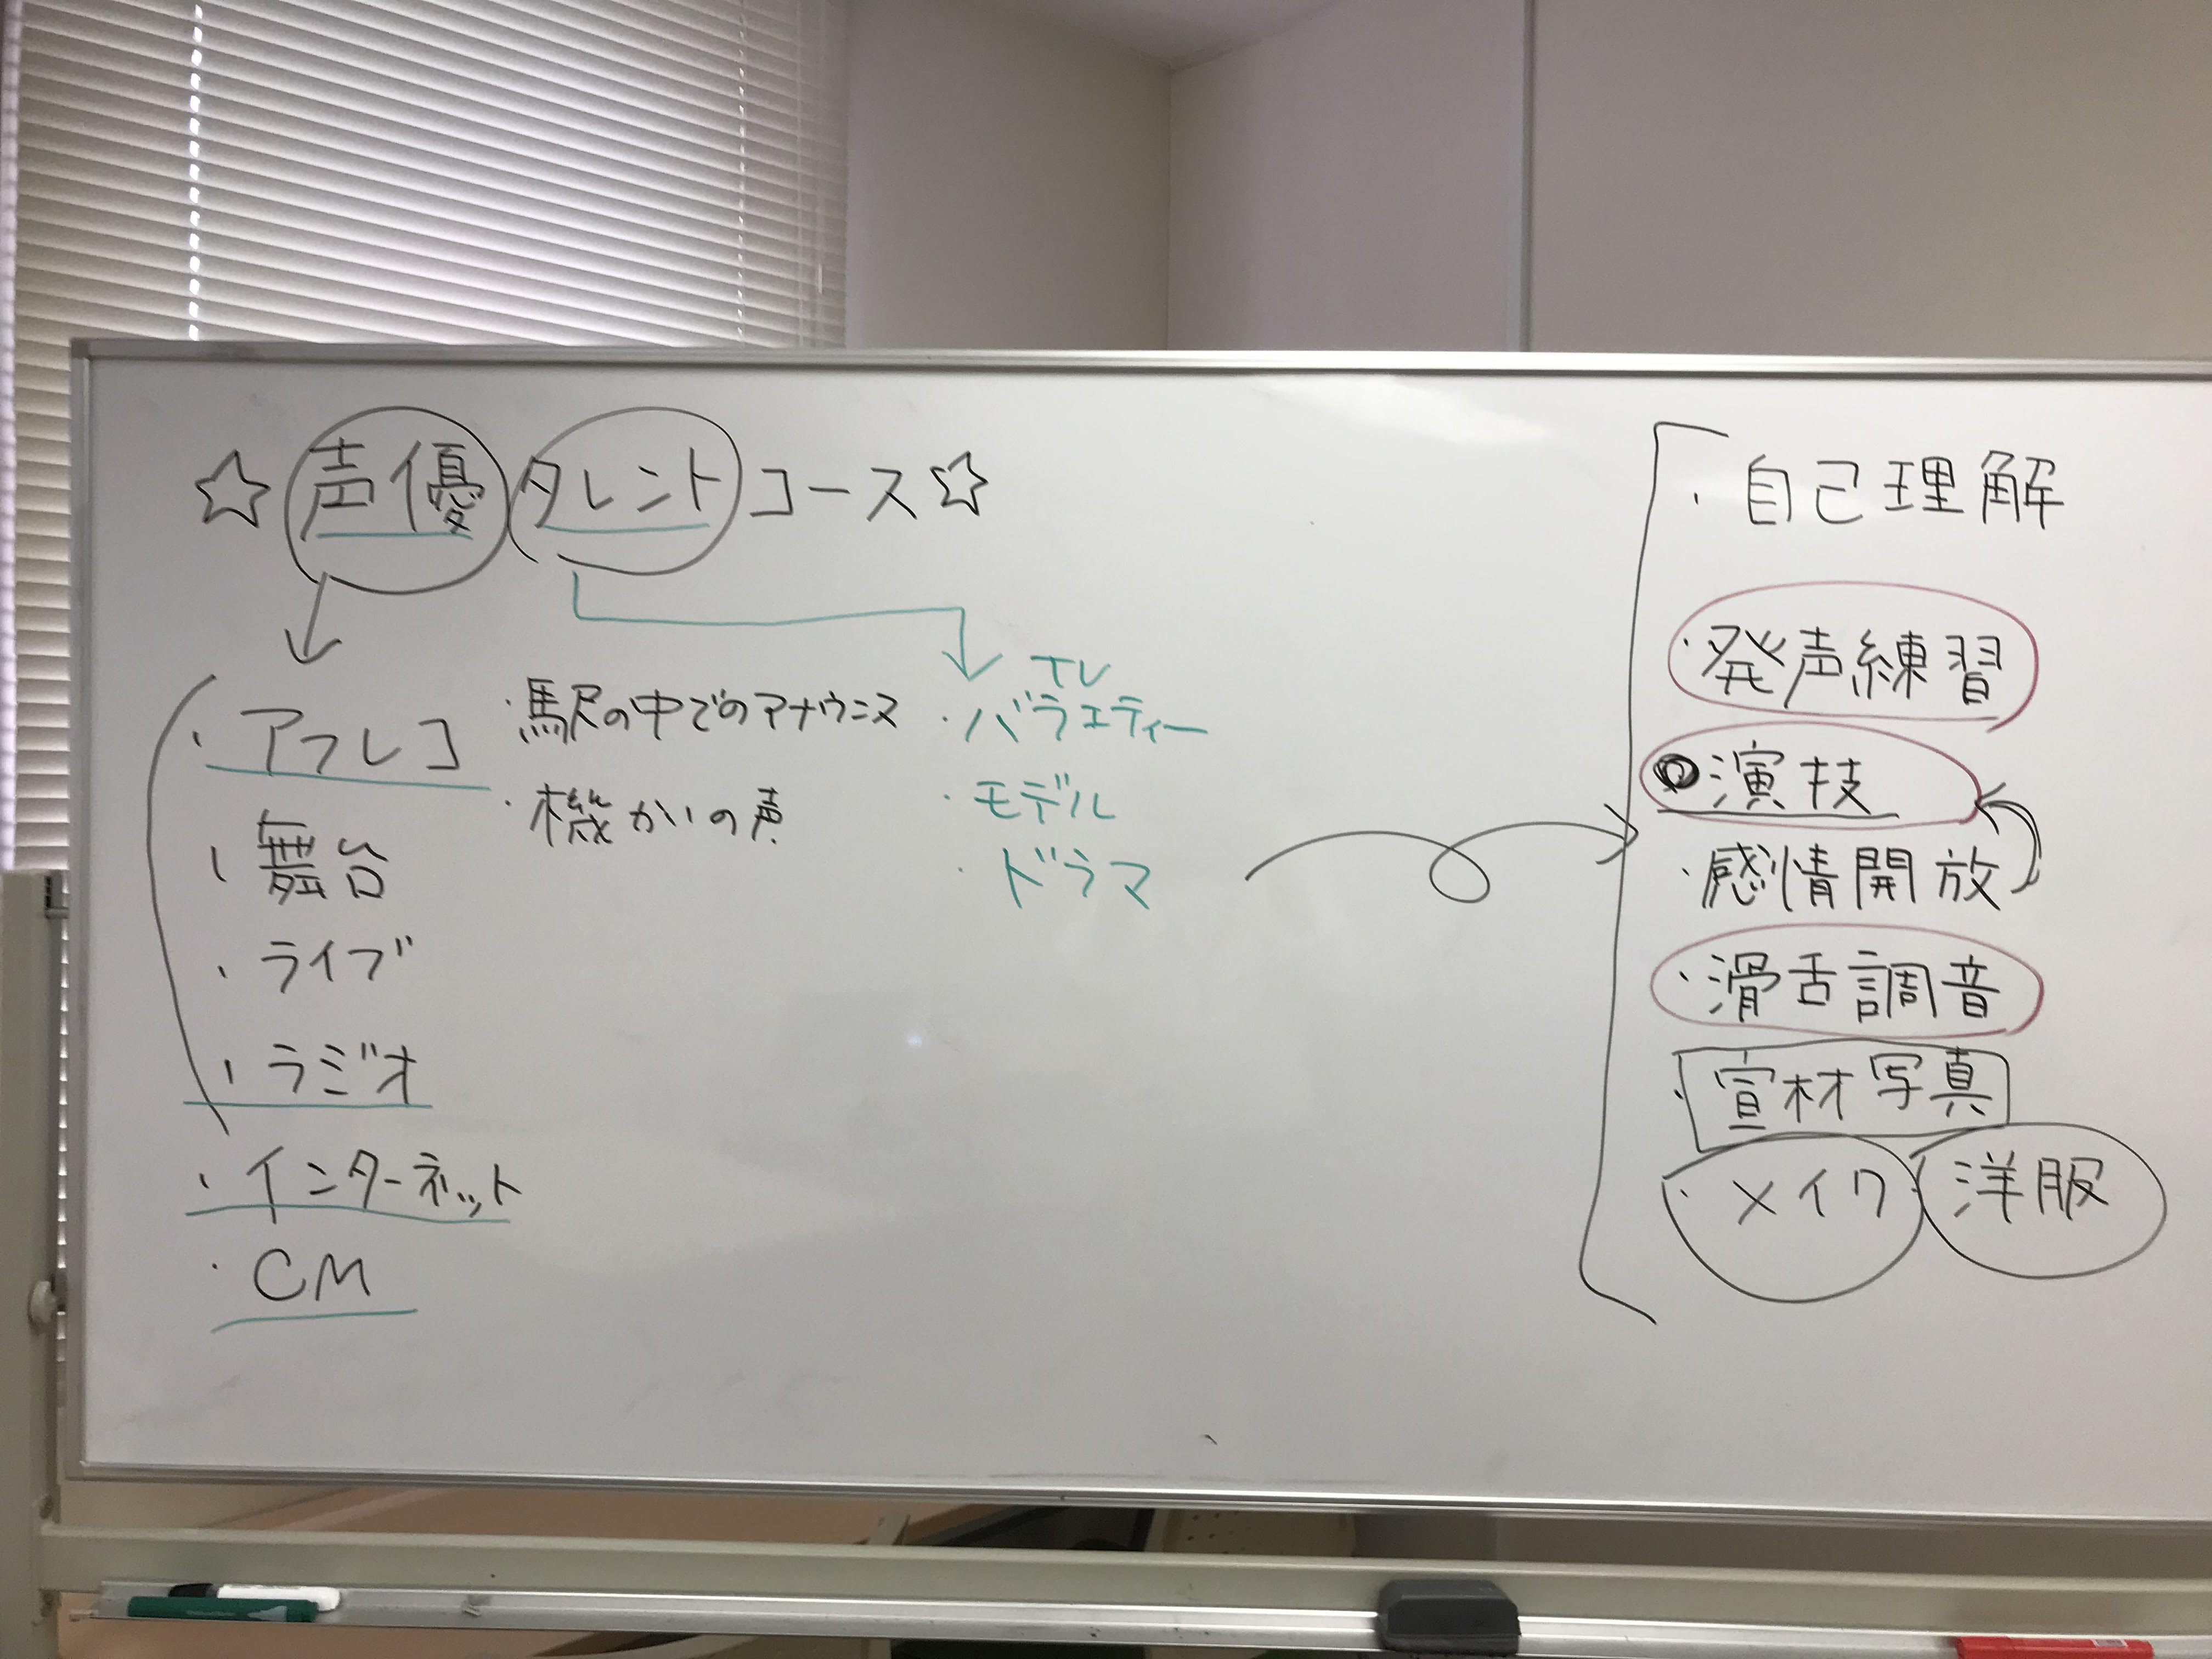 ☆声優タレントコース☆
・アフレコ
・舞台
・ライブ
・ラジオ
・インターネット
・CM
・駅の中でのアナウンス
・機かいの声
TV
・バラエティー
・モデル
・ドラマ
・自己理解
・発声練習
・演技
・感情開放
・滑舌調音
・宣材写真
・メイク・洋服